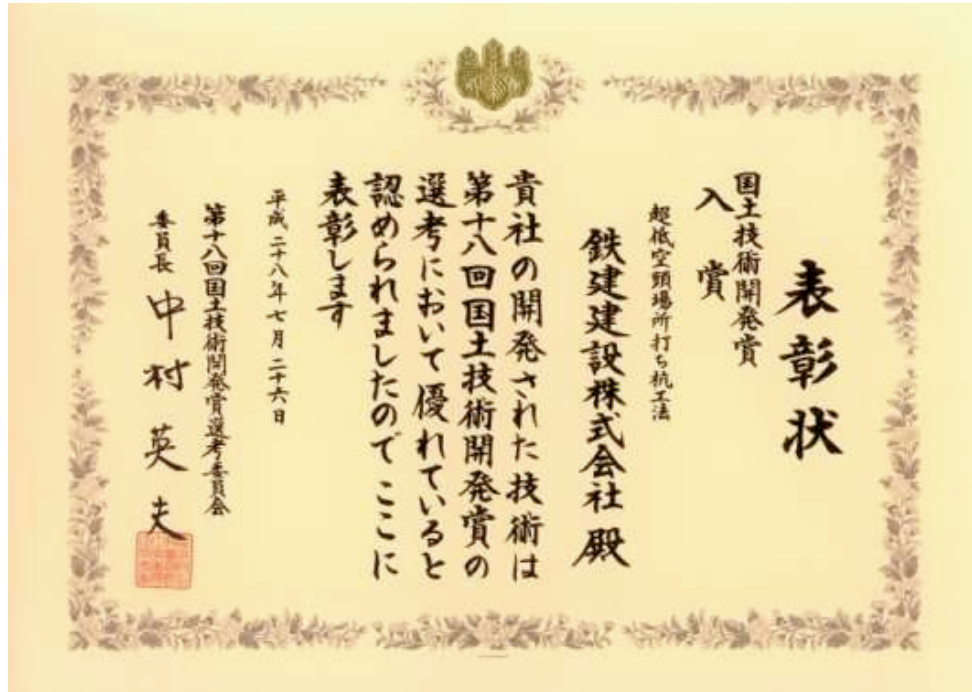 表彰状
国土技術開発賞
入賞
超低空頭場所打ち杭工法
鉄建建設株式会社 殿
貴社の開発された技術は
第十八回国土技術開発賞の
選考において優れていると
認められましたので ここに
表彰します
平成二十八年七月二十六日
第十八回国土技術開発賞選考委員会
委員長 中村英夫